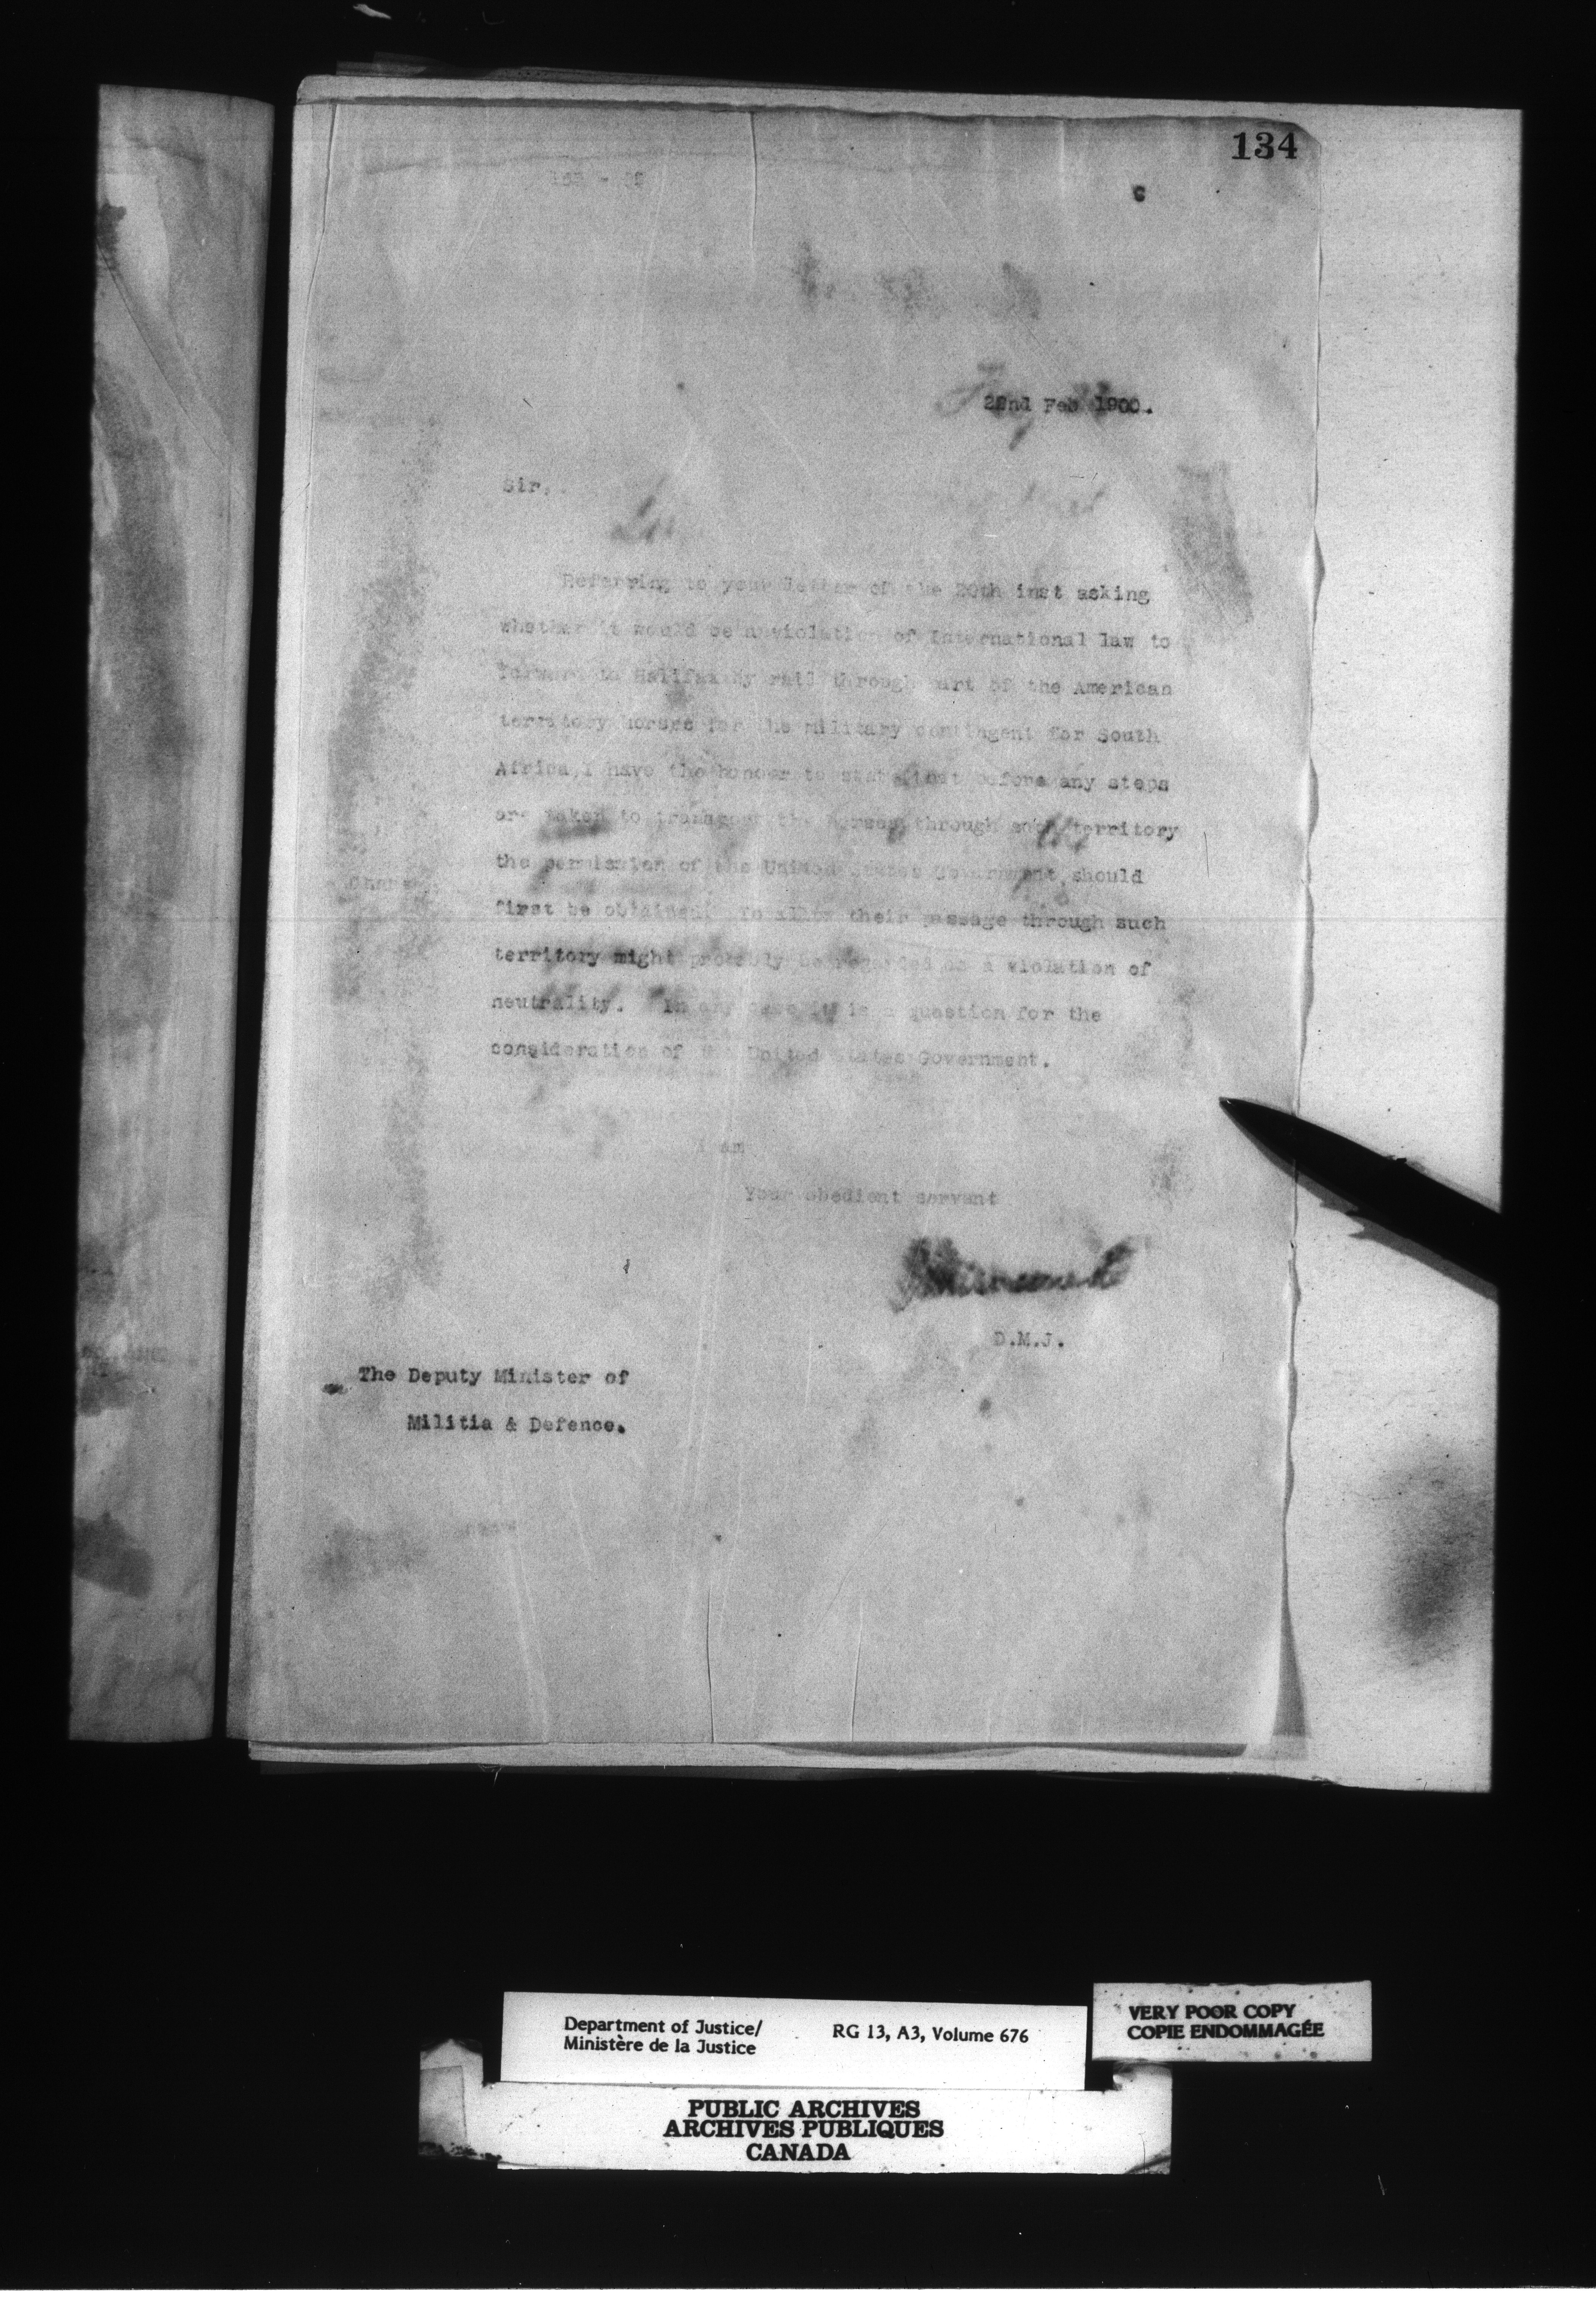 134
22nd Feb 1900.
Sir,
Referring to your letter of the 20th inst asking
whether it would be a violation of International law to
forward to Halifax by rail through part of the American
territory horses for the military contingent for South
Africa, I have the honour to state that before any steps
are taken to transport the horses through such territory
the permission of the United States Government should
first be obtained. To allow their passage through such
territory might probably be regarded as a violation of
neutrality. In any case it is a question for the
consideration of the United States Government.
I am
Your obedient servant
D.M.J.
The Deputy Minister of
Militia & Defence.
Department of Justice/ RG 13, A3, Volume 676
Ministère de la Justice
VERY POOR COPY
COPIE ENDOMMAGÉE
PUBLIC ARCHIVES
ARCHIVES PUBLIQUES
CANADA